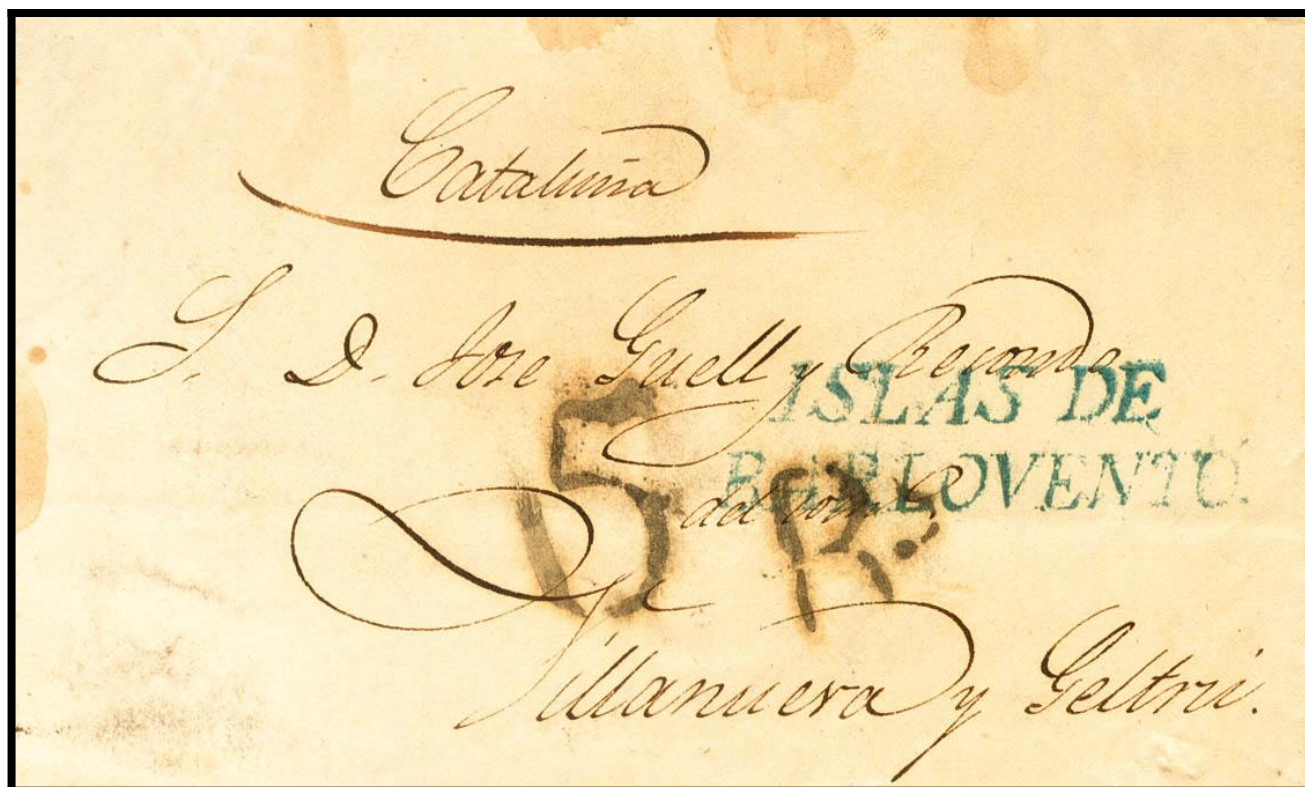 Cataluña
S. D. Jose Guell y Ricarde
ISLAS DE
BARLOVENTO.
5 Rs.
del com.º
Villanueva y Geltrú.